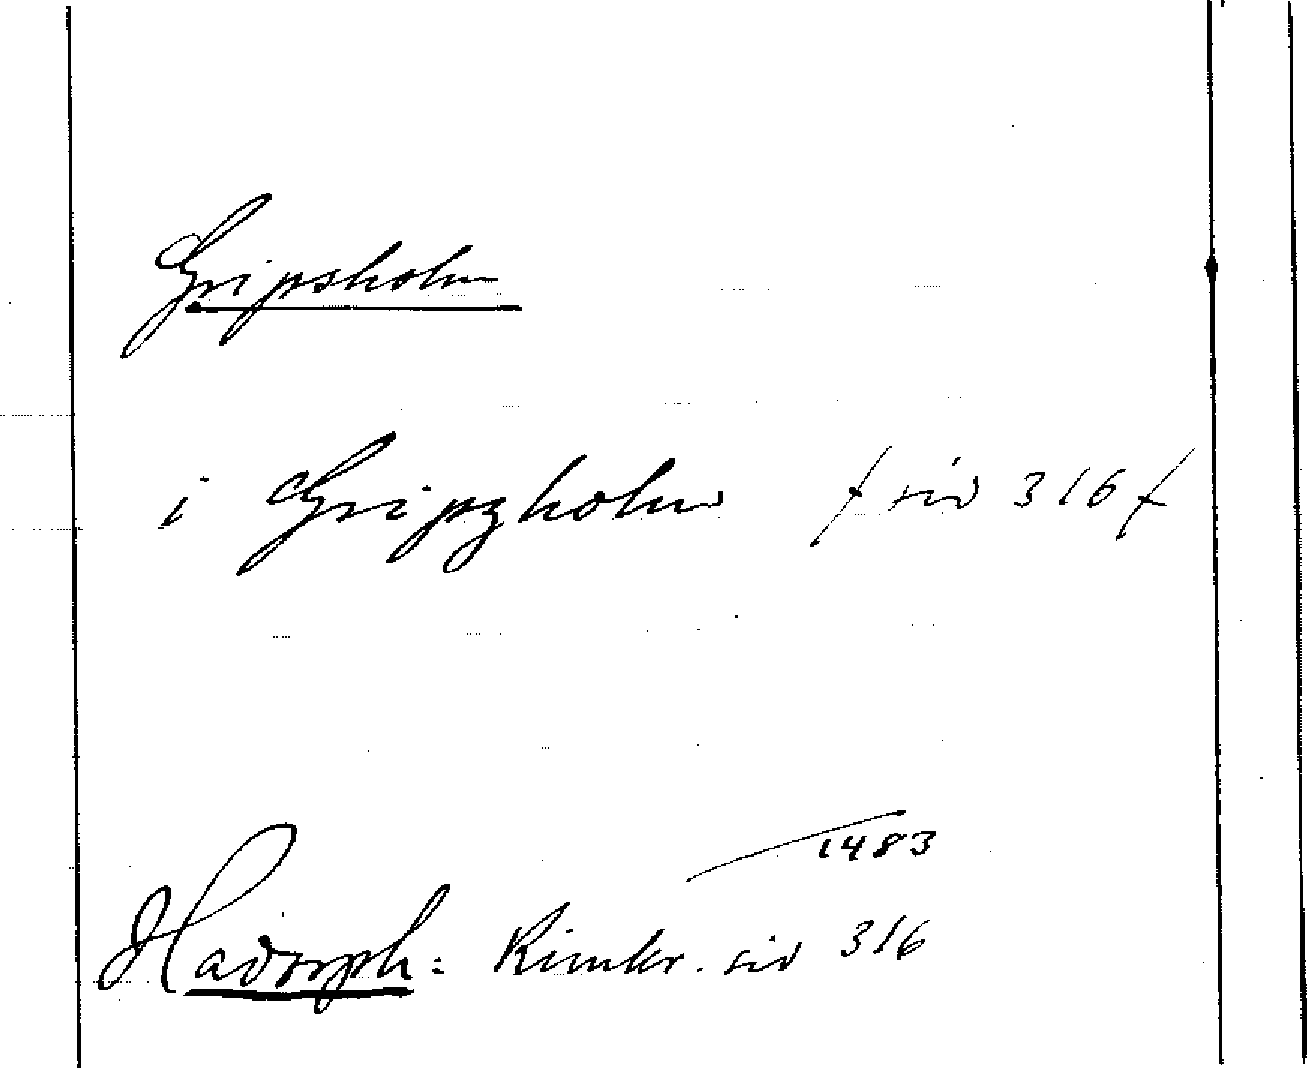 Gripsholm
i Gripzholm / sid 316 /
1483
Hadorph: Rimkr. sid 316